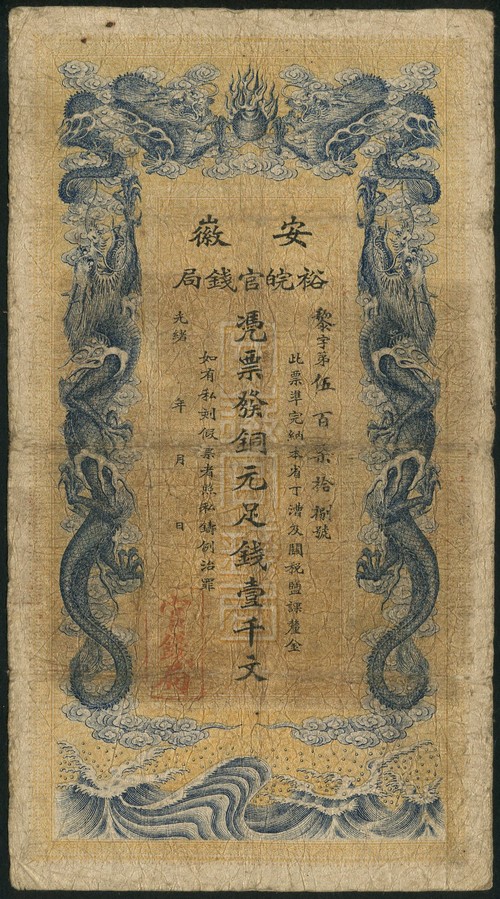 安徽
裕皖官錢局
黎字第伍百貳拾捌號
此票準完納本省丁漕及關稅鹽課釐金
憑票發銅元足錢壹千文
如有私刻假票者照私鑄例治罪
光緒 年 月 日
官錢局